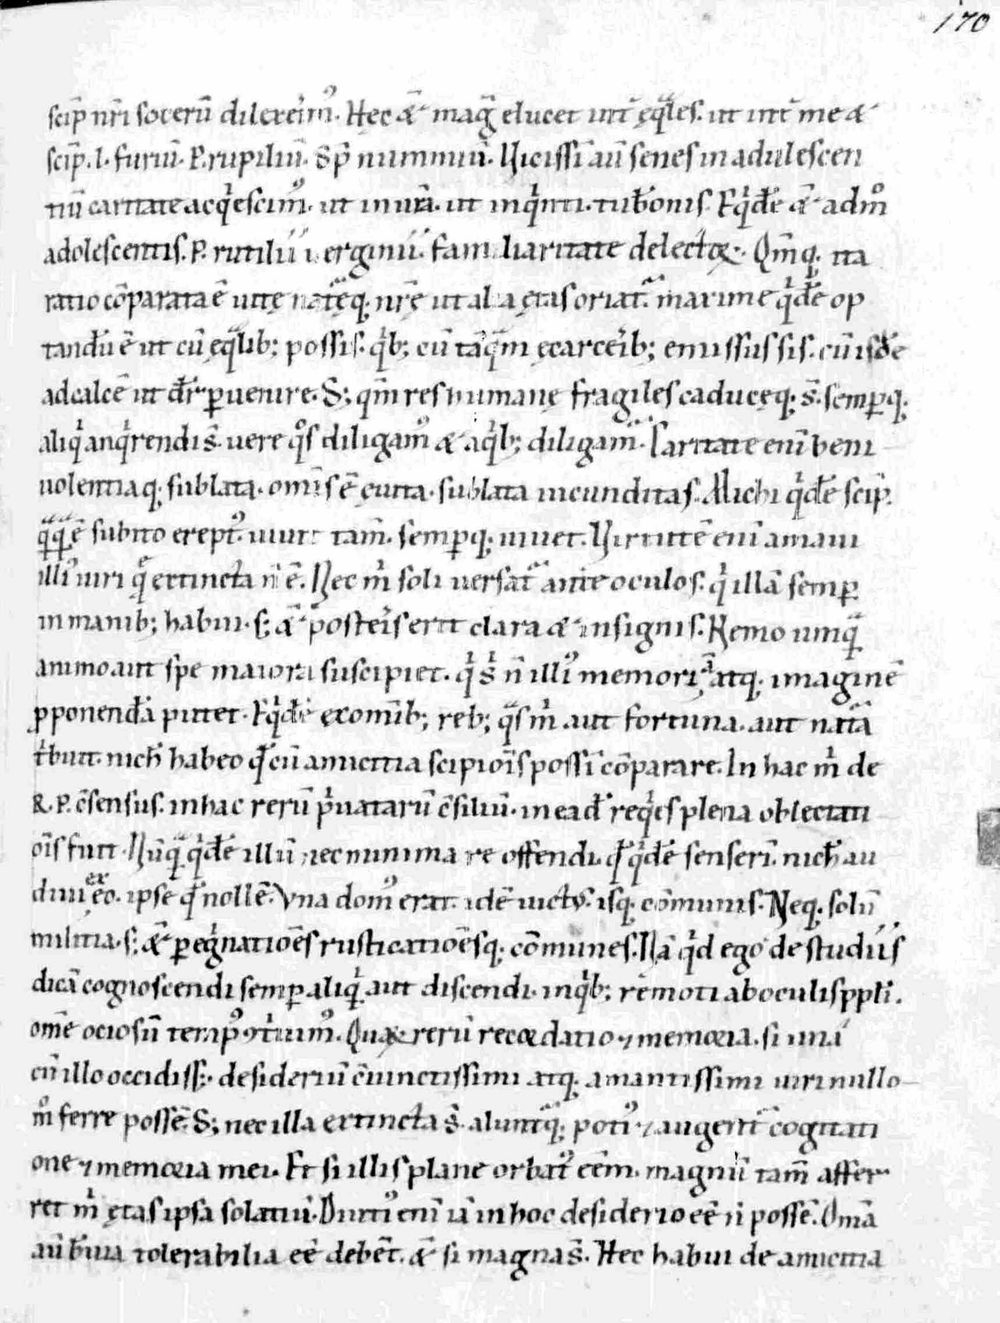 170
scip̄ nr̄i socerū dilexeĩm᷒. Hec & magi̅ elucet int̄ ęq̄les. ut int̄ me &
scip̄. l. furiū. P. rupiliū. Sp̄ mummiū. Vicissī aū senes in adulescen
tiū caritate acq̇escim᷒. ut in ur̄a. ut in q̇nti. tub̄onis. Eq̇dē & admo᷒
adolescentis. P. rutilii uerginii familiaritate delector. Qm̄q; ita
ratio cōparata ē uitę natęq; nrę̄ ut alia ętas oriat᷒. maxime q̇dē op
tandū ē ut cū ęq̄lib; possis. q̇b; cū tāq̄m e carceīb; emissus sis. cū isdē
ad calcē ut dr̄ p̱uenire. S; qm̄ res humanę fragiles caducęq; s̄. semp̱q;
aliq̇ anq̇rendi s̄. uere q̊s diligam᷒ & a q̇b; diligam᷒. Caritate enī beni
uolentiaq; sublata. omīs ē e uita. sublata iucunditas. Michi q̇dē scip̄.
q̄q̄ ē subito erept᷒. uiuit tam̄. semp̱q; uiuet. Virtutē enī amaui
illi᷒ uiri q̄ extincta n̄ ē. Nec m̄ soli uersat᷒ ante oculos. q̇ illā semp̱
in manib; habui. s; & posteīs erit clara & insignis. Nemo umq̄
animo aut spe maiora suscipiet. q̇ ṡ n̄ illi᷒ memoriā atq; imaginē
p̱ponendā putet. Eq̇dē ex omīb; reb; q̄s m̄ aut fortuna. aut natā
tbuit. nich̄ habeo qd̄ cū amicitia scipioīs possī cōparare. In hac m̄ de
R. P. c̄sensus. in hac rerū ṗuatarū c̄siliū. in ead̄ req̇es plena oblectati
oīs fuit. Nūq̄ q̇dē illū nec minima re offendi. qd̄ q̇dē senserī. nich̄ au
diui ex eo. ipse qd̄ nollē. Vna dom᷒ erat. idē uict᷒. isq; cōmunis. Neq; solū
militia. s; & p̱egr̄natioēs rusticatioēsq; cōmunes. Nā q̇d ego de studiis
dicā cognoscendi semp̱ aliq̇. aut discendi. in q̇b; remoti ab oculis ppl̄i.
omē ociosū temp᷒ ꝯtriuim᷒. Quaꝝ rerū recordatio ⁊ memoria. si una
cū illo occidiss;. desideriū c̄iunctissimi atq; amantissimi uiri nullo
m̊ ferre possē. S; nec illa extincta s̄. alunt᷒q; poti᷒ ⁊ augent᷒ cogitati
one ⁊ memoria mei. Et si illis plane orbat᷒ eēm. magnū tam̄ affer
ret m̄ ętas ipsa solatiū. Diuti᷒ enī iā in hoc desiderio eē n̄ possē. Omā
aū b̄uia tolerabilia eē debēt. & si magna s̄. Hec habui de amicitia